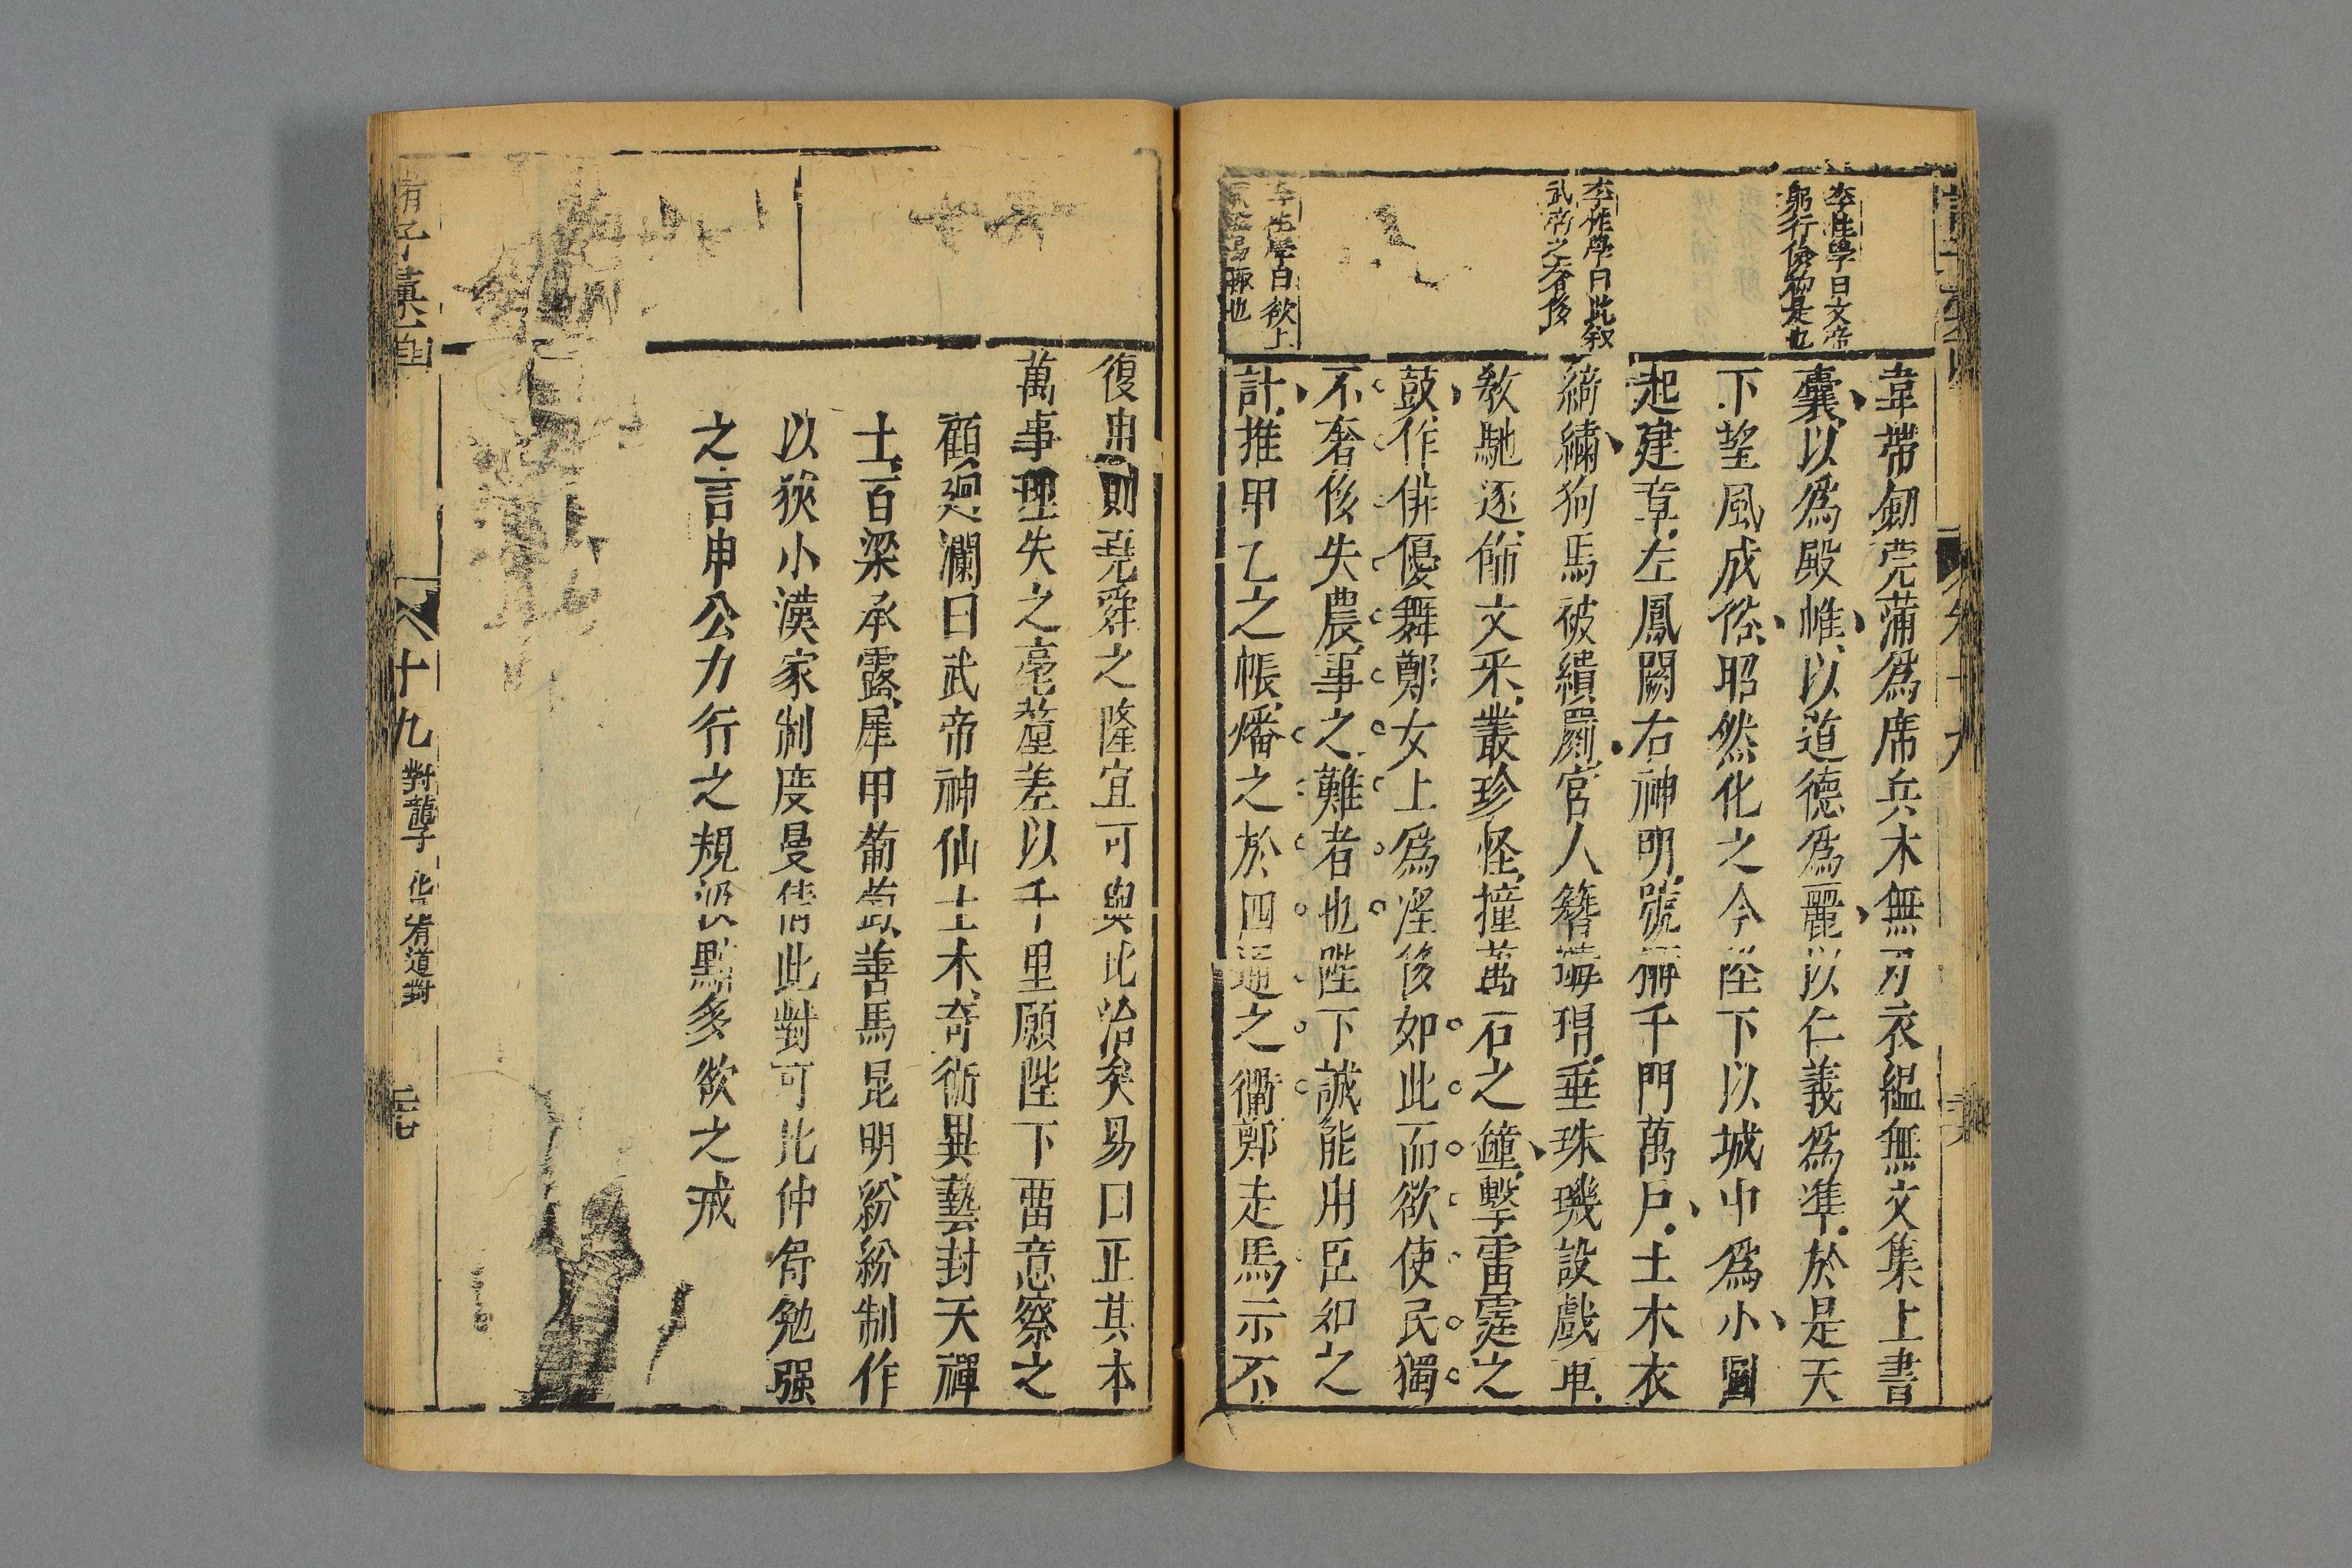 李性學曰文帝
躬行儉約是也
李性學曰此叙
武帝之奢侈
李性學曰欲上
韋帶劒莞蒲爲席兵木無刃衣縕無文集上書
囊以爲殿帷以道德爲麗以仁義爲準於是天
下望風成俗昭然化之今陛下以城中爲小圖
起建章左鳳闕右神明號稱千門萬戶土木衣
綺繡狗馬被繢罽宮人簪瑇瑁垂珠璣設戲車
教馳逐飾文采叢珍怪撞萬石之鐘擊雷霆之
鼓作俳優舞鄭女上爲淫侈如此而欲使民獨
不奢侈失農事之難者也陛下誠能用臣和之
計推甲乙之帳燔之於四通之衢鄭走馬示不
復用則堯舜之隆宜可與比治矣易曰正其本
萬事理失之毫釐差以千里願陛下畱意察之
顧廻瀾曰武帝神仙土木奇術異藝封天禪
土百梁承露犀甲葡萄善馬昆明紛紛制作
以狹小漢家制度曼倩此對可比仲舒勉强
之言申公力行之規汲黯多欲之戒
十九
對龔子
化民有道對